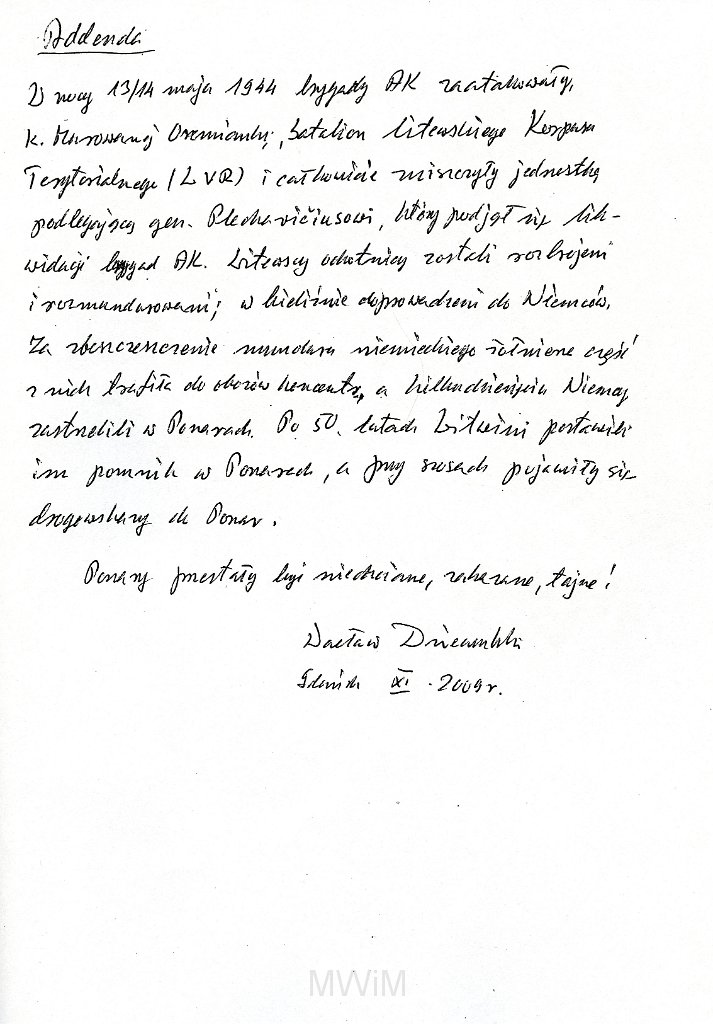 Addenda
W nocy 13/14 maja 1944 brygady AK zaatakowały,
k. Murowanej Oszmianki, batalion litewskiego Korpusu
Terytorialnego (LVR) i całkowicie zniszczyły jednostkę
podlegającą gen. Plechavičiusowi, który podjął się lik-
widacji brygad AK. Litewscy ochotnicy zostali rozbrojeni
i rozmundurowani; w bieliźnie doprowadzeni do Niemców.
Za zbeszczeszczenie munduru niemieckiego żołnierza część
z nich trafiła do obozów koncentr, a kilkudziesięciu Niemcy
rozstrzelili w Ponarach. Po 50. latach Litwini postawili
im pomnik w Ponarach, a przy szosach pojawiły się
drogowskazy do Ponar.
Ponary przestały być niechciane, zakazane, tajne!
Wacław
Gdańsk XI. 2009 r.
MWiM